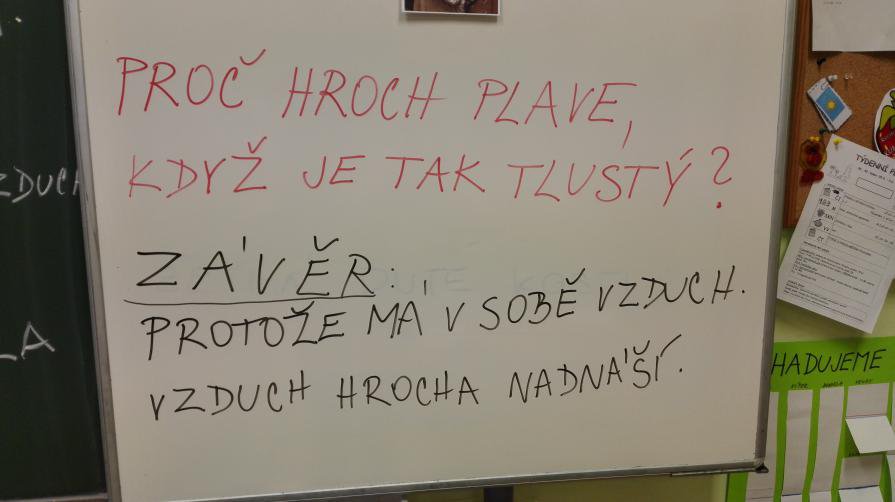 PROČ HROCH PLAVE,
KDYŽ JE TAK TLUSTÝ?
ZÁVĚR:
PROTOŽE MÁ V SOBĚ VZDUCH.
VZDUCH HROCHA NADNÁŠÍ.
TÝDENNÍ
HADUJEME